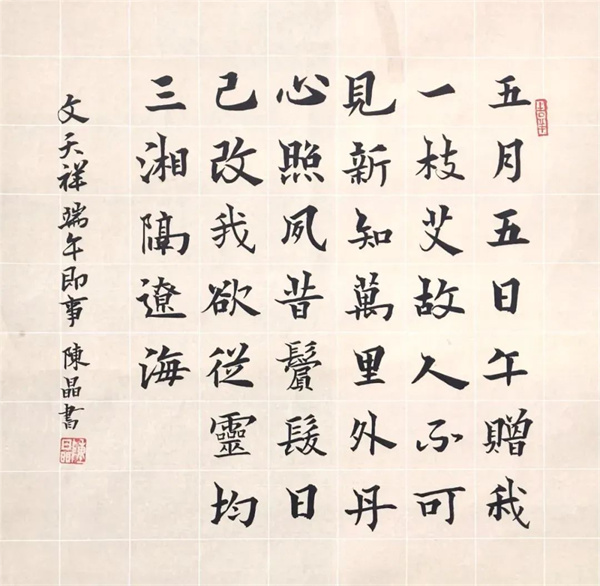 五月五日午贈我
一枝艾故人不可
見新知萬里外丹
心照夙昔鬢髮日
已改我欲從靈均
三湘隔遼海
文天祥端午即事 陳晶書